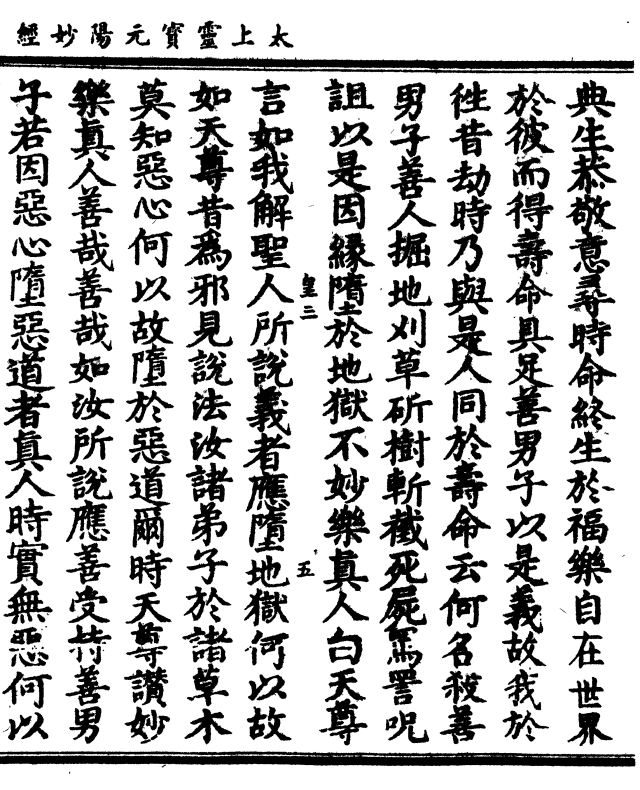 太上靈寶元陽妙經
典生恭敬意尋時命終生於福樂自在世界
於彼而得壽命具足善男子以是義故我於
徃昔劫時乃與是人同於壽命云何名殺善
男子善人掘地刈草斫樹斬截死屍罵詈呪
詛以是因縁墮於地獄不妙樂真人白天尊
皇三
五
言如我解聖人所說義者應墮地獄何以故
如天尊昔爲邪見說法汝諸弟子於諸草木
莫知惡心何以故墮於惡道爾時天尊讃妙
樂真人善哉善哉如汝所說應善受持善男
子若因惡心墮惡道者真人時實無惡何以